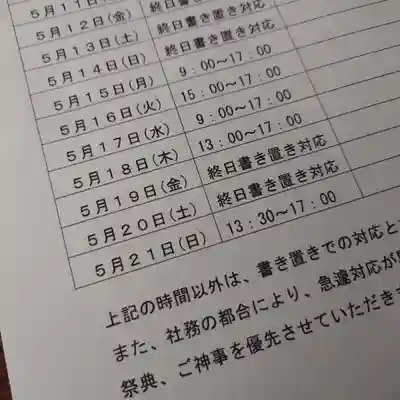 5月11日
5月12日(金) 終日書き置き対応
5月13日(土) 終日書き置き対応
5月14日(日) 終日書き置き対応
5月15日(月) 9:00〜17:00
5月16日(火) 15:00〜17:00
5月17日(水) 9:00〜17:00
5月18日(木) 13:00〜17:00
5月19日(金) 終日書き置き対応
5月20日(土) 終日書き置き対応
5月21日(日) 13:30〜17:00
上記の時間以外は、書き置きでの対応と
また、社務の都合により、急遽対応が
祭典、ご神事を優先させていただきま